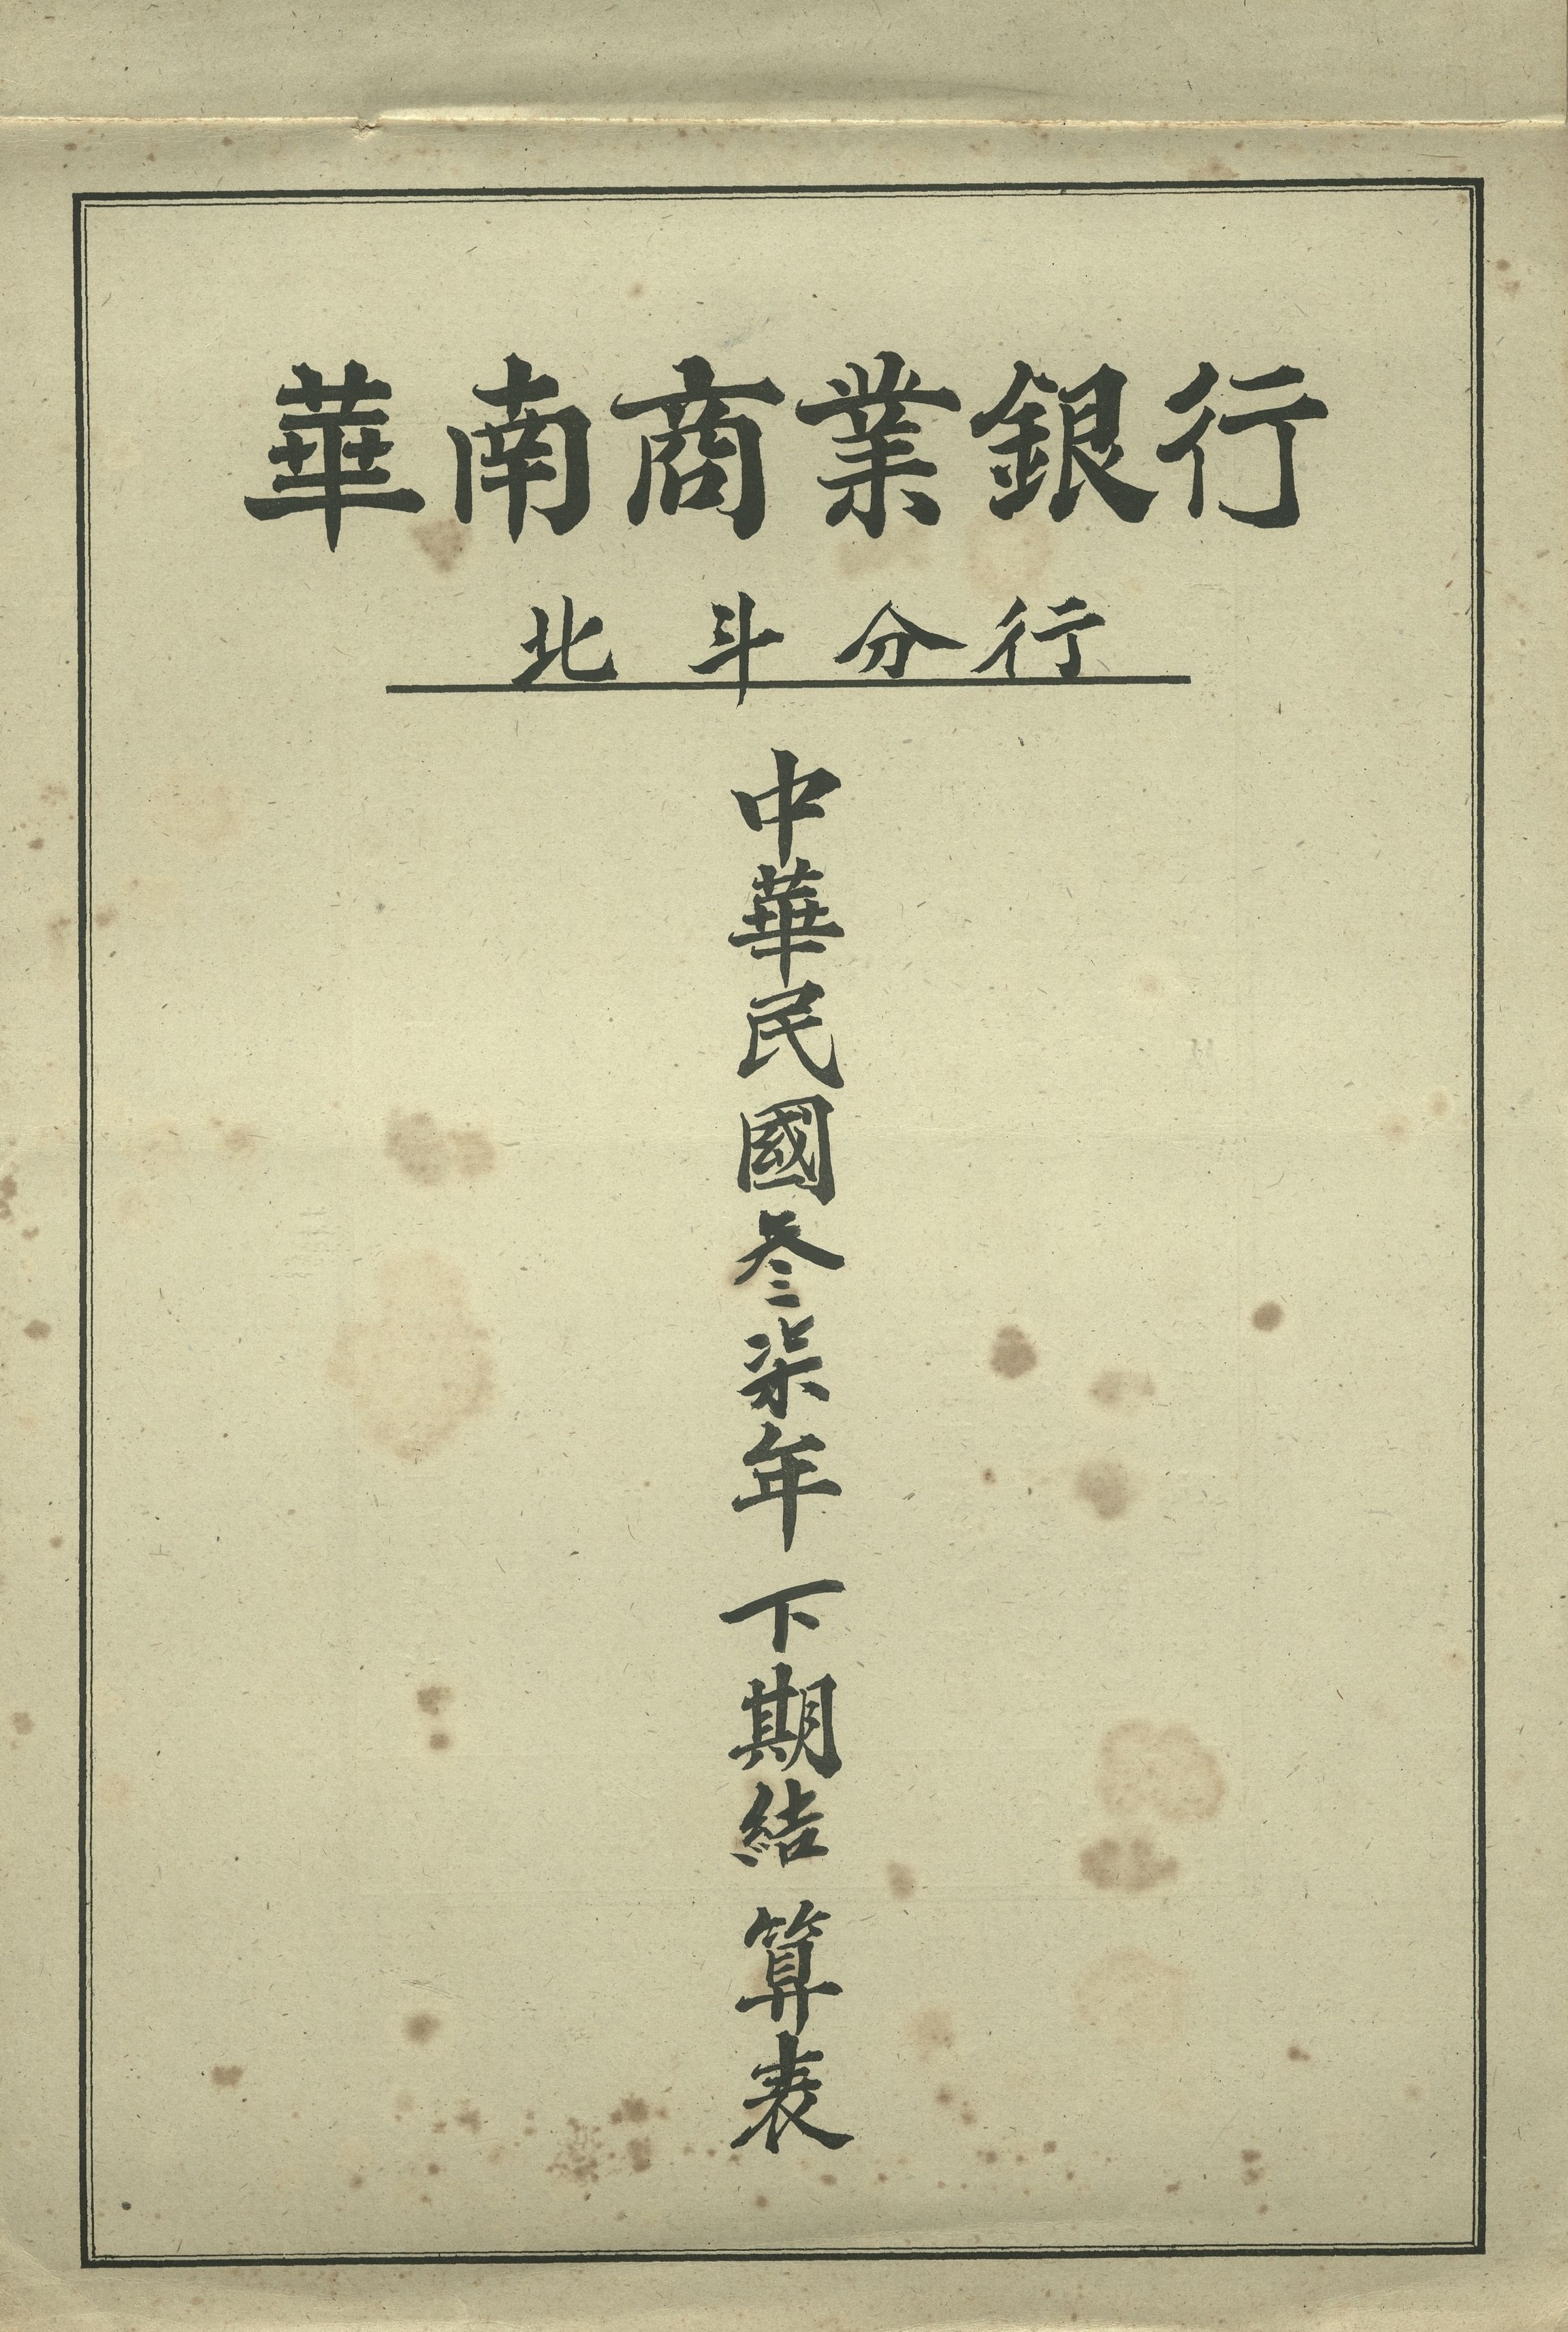 華南商業銀行
北斗分行
中華民國叁柒年下期結算表